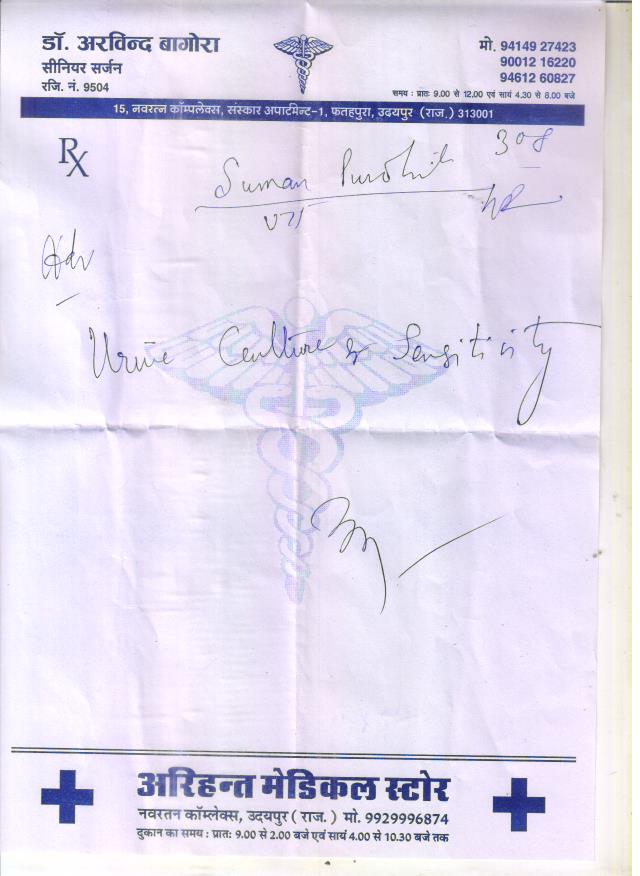 डॉ. अरविन्द बागोरा
सीनियर सर्जन
रजि. नं. 9504
मो. 94149 27423
90012 16220
94612 60827
समय : प्रातः 9.00 से 12.00 एवं सायं 4.30 से 8.00 बजे
15, नवरत्न कॉम्पलेक्स, संस्कार अपार्टमेन्ट-1, फतहपुरा, उदयपुर (राज.) 313001
Rx
308
Suman Purohit
Adv
Urine Culture & Sensitivity
अरिहन्त मेडिकल स्टोर
नवरतन कॉम्लेक्स, उदयपुर ( राज. ) मो. 9929996874
दुकान का समय : प्रातः 9.00 से 2.00 बजे एवं सायं 4.00 से 10.30 बजे तक